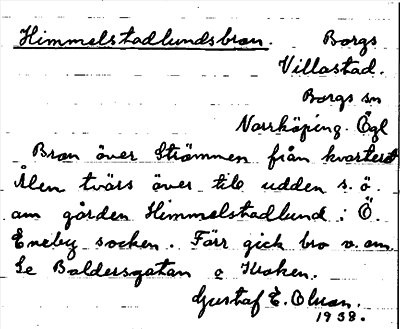 Himmelstadlundsbron. Borgs
Villastad.
Borgs sn
Norrköping. Ögl
Bron över Strömmen från kvarteret
Ålen tvärs över till udden s.ö.
om gården Himmelstadlund i Ö.
Eneby socken. Förr gick bro v. om
Se Baldersgatan o Kraken.
Gustaf E. Olsson.
1938.